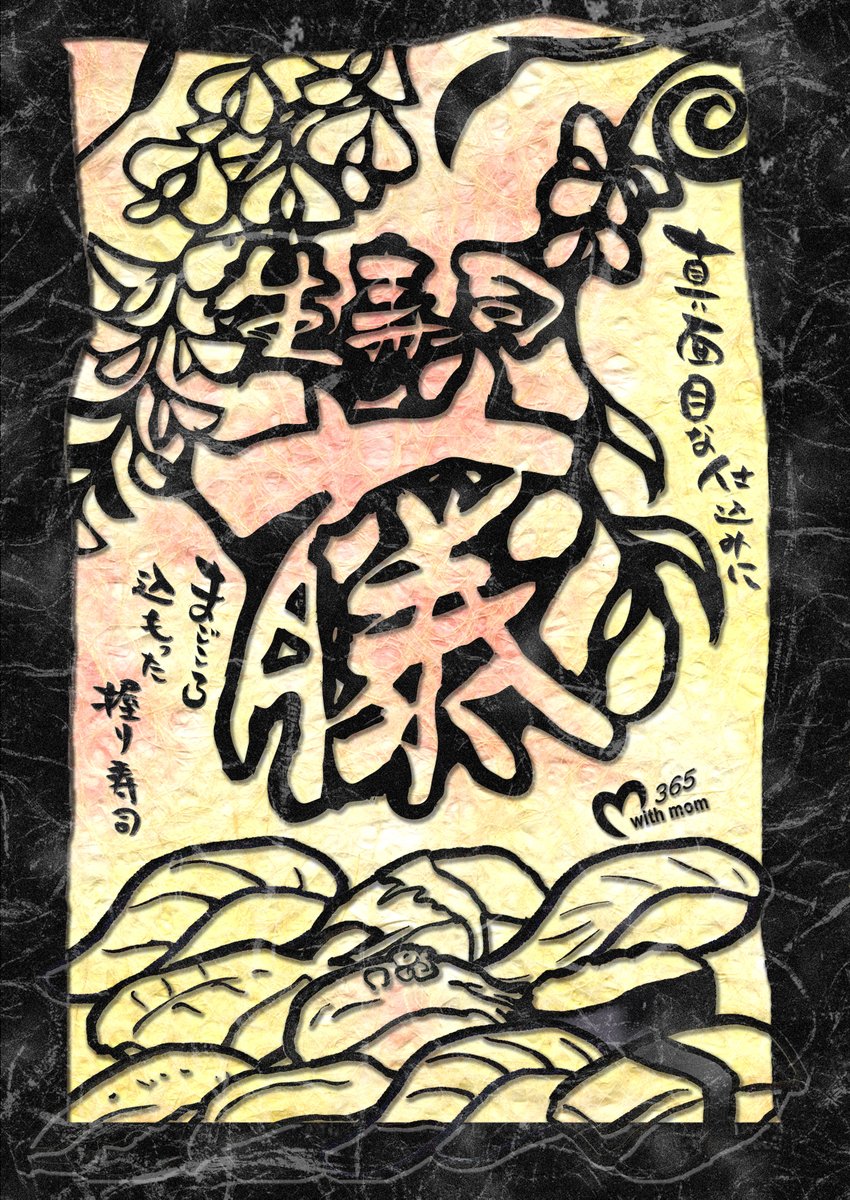 真面目な仕込みに
生寿司
藤
まごころ
込もった
握り寿司
365
with mom